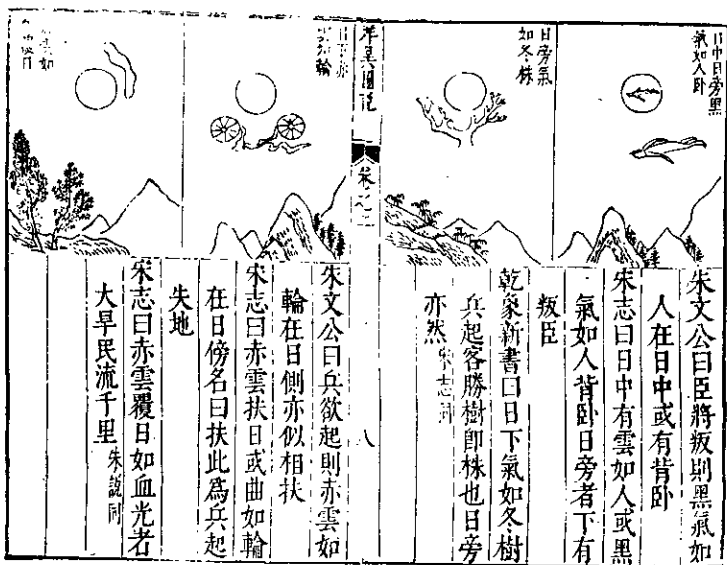 日中日旁黑
氣如人卧
日旁氣
如冬株
朱文公曰臣將叛則黑氣如
人在日中或有背卧
宋志曰日中有雲如人或黑
氣如人背卧日旁者下有
叛臣
乾象新書曰日下氣如冬樹
兵起客勝樹即株也日旁
亦然朱志同
祥異圖說
卷之二
八
日下赤
雲如輪
朱文公曰兵欲起則赤雲如
輪在日側亦似相扶
宋志曰赤雲扶日或曲如輪
在日傍名曰扶此為兵起
失地
宋志曰赤雲覆日如血光者
大旱民流千里朱說同